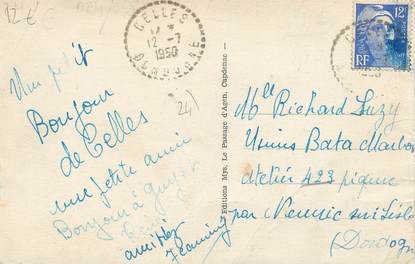 12 €
CELLES
12 -7
1950
DORDOGNE
12F
RF
1950
(24)
Un petit
Bonjour
de Celles
une petite amie
Bonjour à
amitiés
Editions Mys, Le Passage d'Agen, Capdenac
Mlle Richard Suzy
Usines Bata
atelier 423 piqure
par Neuvic sur Isle
(Dordogne